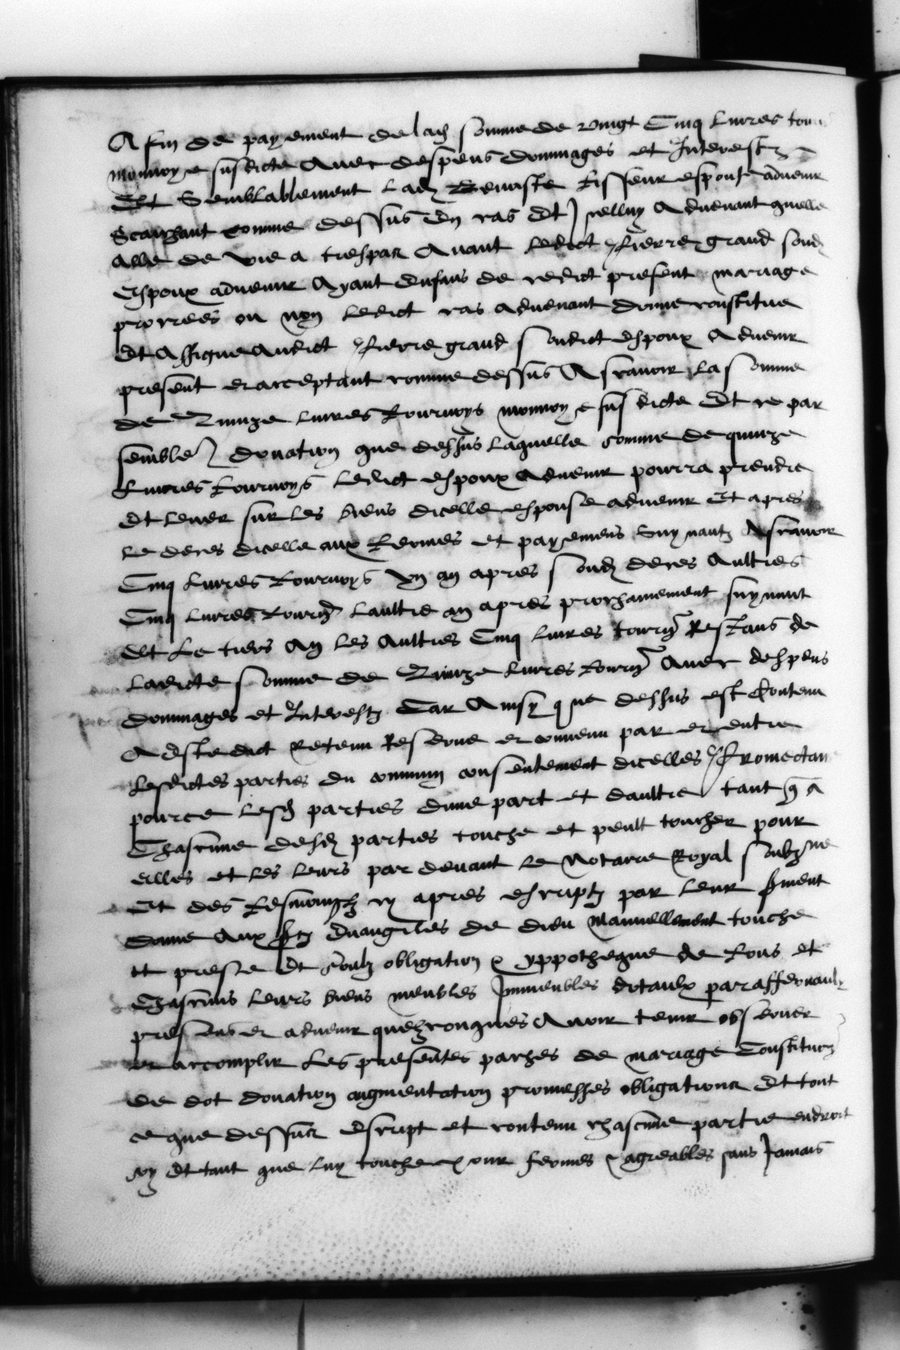 A fin de payement de lad somme de vingt Cinq livres tour
monnoye susdicte Avec despens dommages et Interestz
Et Semblablement lad Benoiste espouse advenir
Scaichant comme dessus En cas Et icelluy Advenant quelle
alle de vie a trespas Avant ledict Pierre grand sond
Espoux advenir Ayant enfans de cedict present mariage
procrees ou non ledict cas advenant donne constitue
Et Assigne Audict Pierre grand sondict espoux Advenir
present et acceptant comme dessus Ascavoir La somme
de Quinze livres tournoys monnoye susdicte Et ce par
semble donation que dessus laquelle somme de quinze
Livres tournoys ledict espoux Advenir pourra prendre
Et lever sur les biens dicelle espouse advenir Et apres
le deces dicelle aux termes et payemens Suyvantz Ascavoir
Cinq livres tournoys Un an apres sond deces Aultres
Cinq livres tourn Laultre an apres prochainement suyvant
Et le tiers An les Aultres Cinq livres tourn Restans de
Ladicte somme de Quinze livres tourn Avec despens
dommages et Interestz Car Ainsy que dessus est Contenu
A este dict Retenu Reserve et convenu par et entre
Lesdictes parties du commun consentement dicelles Promectan
pource lesd parties dune part et daultre tant q a
Chascune desd parties touche et peult toucher pour
elles et les leurs par devant le Notaire Royal soubzne
Et des tesmoingz cy apres escriptz par leur sment
donne Aux stz Evangiles de dieu manuellement touche
et preste Et soubz obligation & yppotheque de tous et
Chascuns leurs biens meubles Immeubles dotaulx paraffernaulx
presens et advenir quelzconques Avoir tenir observer
et accomplir Les presentes paches de mariage Constitution
de dot donation augmentation promesses obligations Et tout
ce que dessus escript et contenu chascune partie endroit
soy Et tant que luy touche pour fermes & agreables sans Jamais